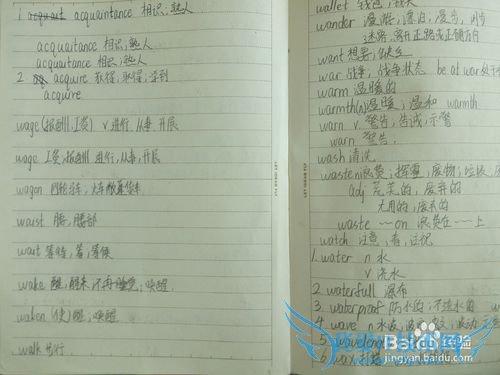 1 acquaintance 相识,熟人
acquaitance 相识,熟人
acquaitance 相识,熟人
2 acquire 获得,取得,学到
acquire
wage (报酬,工资) v 进行,从事,开展
wage 工资,报酬,进行,从事,开展
wagon 四轮马车,
waist 腰,腰部
wait 等待,等,等候
wake 醒,醒来,不再睡觉,唤醒
waken (使)醒,唤醒
walk 步行
wallet 钱包,
wander 漫游,漂泊,漫步,
迷路,离开正路或正确方向
want 想要,缺乏
war 战争,战争状态 be at war 处于
warm 温暖的
warmth(n)温暖,温和 warmth
warn v. 警告,告诫,示警
warn 警告,
wash 清洗
waste n 浪费,挥霍,废物,垃圾,
adj 荒芜的,废弃的
无用的,废弃的
waste ~~ on 浪费在~~上
watch 注意,看,注视
1. water n 水
v 浇水
2 waterfull 瀑布
3. waterproof 防水的,不透水的
4 wave n 水波,
5 wavelength
6 wax
Baidu 经验
jingyan.baidu.com